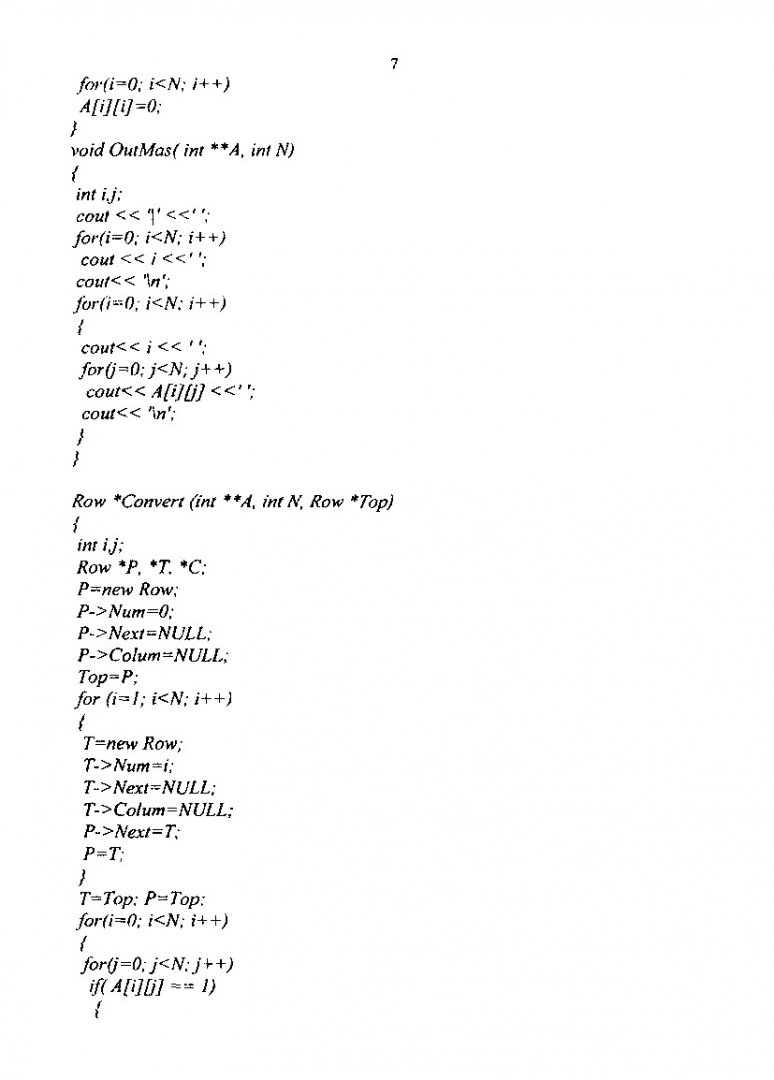 7
for(i=0; i<N; i++)
A[i][i]=0;
}
void OutMas( int **A, int N)
{
int i,j;
cout << '|' <<' ';
for(i=0; i<N; i++)
cout << i <<' ';
cout<< '\n';
for(i=0; i<N; i++)
{
cout<< i << ' ';
for(j=0; j<N; j++)
cout<< A[i][j] <<' ';
cout<< '\n';
}
}
Row *Convert (int **A, int N, Row *Top)
{
int i,j;
Row *P, *T, *C;
P=new Row;
P->Num=0;
P->Next=NULL;
P->Colum=NULL;
Top=P;
for (i=1; i<N; i++)
{
T=new Row;
T->Num=i;
T->Next=NULL;
T->Colum=NULL;
P->Next=T;
P=T;
}
T=Top; P=Top;
for(i=0; i<N; i++)
{
for(j=0; j<N; j++)
if( A[i][j] == 1)
{